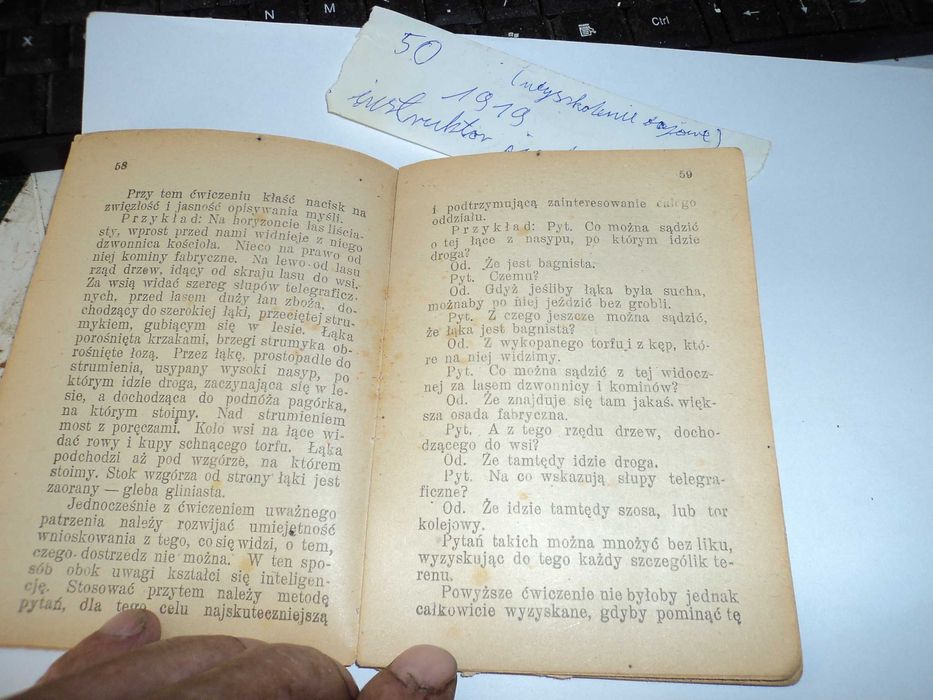 X
N
M
Ctrl
50
(wyszkolenie bojowe)
1919
instruktor
58
Przy tem ćwiczeniu kłaść nacisk na
zwięzłość i jasność opisywania myśli.
Przykład: Na horyzoncie las liścia-
sty, wprost przed nami widnieje z niego
dzwonnica kościoła. Nieco na prawo od
niej kominy fabryczne. Na lewo od lasu
rząd drzew, idący od skraju lasu do wsi.
Za wsią widać szereg słupów telegraficz-
nych, przed lasem duży łan zboża, do-
chodzący do szerokiej łąki, przeciętej stru-
mykiem, gubiącym się w lesie. Łąka
porośnięta krzakami, brzegi strumyka ob-
rośnięte łozą. Przez łąkę, prostopadle do
strumienia, usypany wysoki nasyp, po
którym idzie droga, zaczynająca się w le-
sie, a dochodząca do podnóża pagórka,
na którym stoimy. Nad strumieniem
most z poręczami. Koło wsi na łące wi-
dać rowy i kupy schnącego torfu. Łąka
podchodzi aż pod wzgórze, na którem
stoimy. Stok wzgórza od strony łąki jest
zaorany — gleba gliniasta.
Jednocześnie z ćwiczeniem uważnego
patrzenia należy rozwijać umiejętność
wnioskowania z tego, co się widzi, o tem,
czego dostrzedz nie można. W ten spo-
sób obok uwagi kształci się inteligen-
cję. Stosować przytem należy metodę
pytań, dla tego celu najskuteczniejszą
59
i podtrzymującą zainteresowanie całego
oddziału.
Przykład: Pyt. Co można sądzić
o tej łące z nasypu, po którym idzie
droga?
Od. Że jest bagnista.
Pyt. Czemu?
Od. Gdyż jeśliby łąka była sucha,
możnaby po niej jeździć bez grobli.
Pyt. Z czego jeszcze można sądzić,
że łąka jest bagnista?
Od. Z wykopanego torfu i z kęp, któ-
re na niej widzimy.
Pyt. Co można sądzić z tej widocz-
nej za lasem dzwonnicy i kominów?
Od. Że znajduje się tam jakaś więk-
sza osada fabryczna.
Pyt. A z tego rzędu drzew, docho-
dzącego do wsi?
Od. Że tamtędy idzie droga.
Pyt. Na co wskazują słupy telegra-
ficzne?
Od. Że idzie tamtędy szosa, lub tor
kolejowy.
Pytań takich można mnożyć bez liku,
wyzyskując do tego każdy szczególik te-
renu.
Powyższe ćwiczenie nie byłoby jednak
całkowicie wyzyskane, gdyby pominąć tę